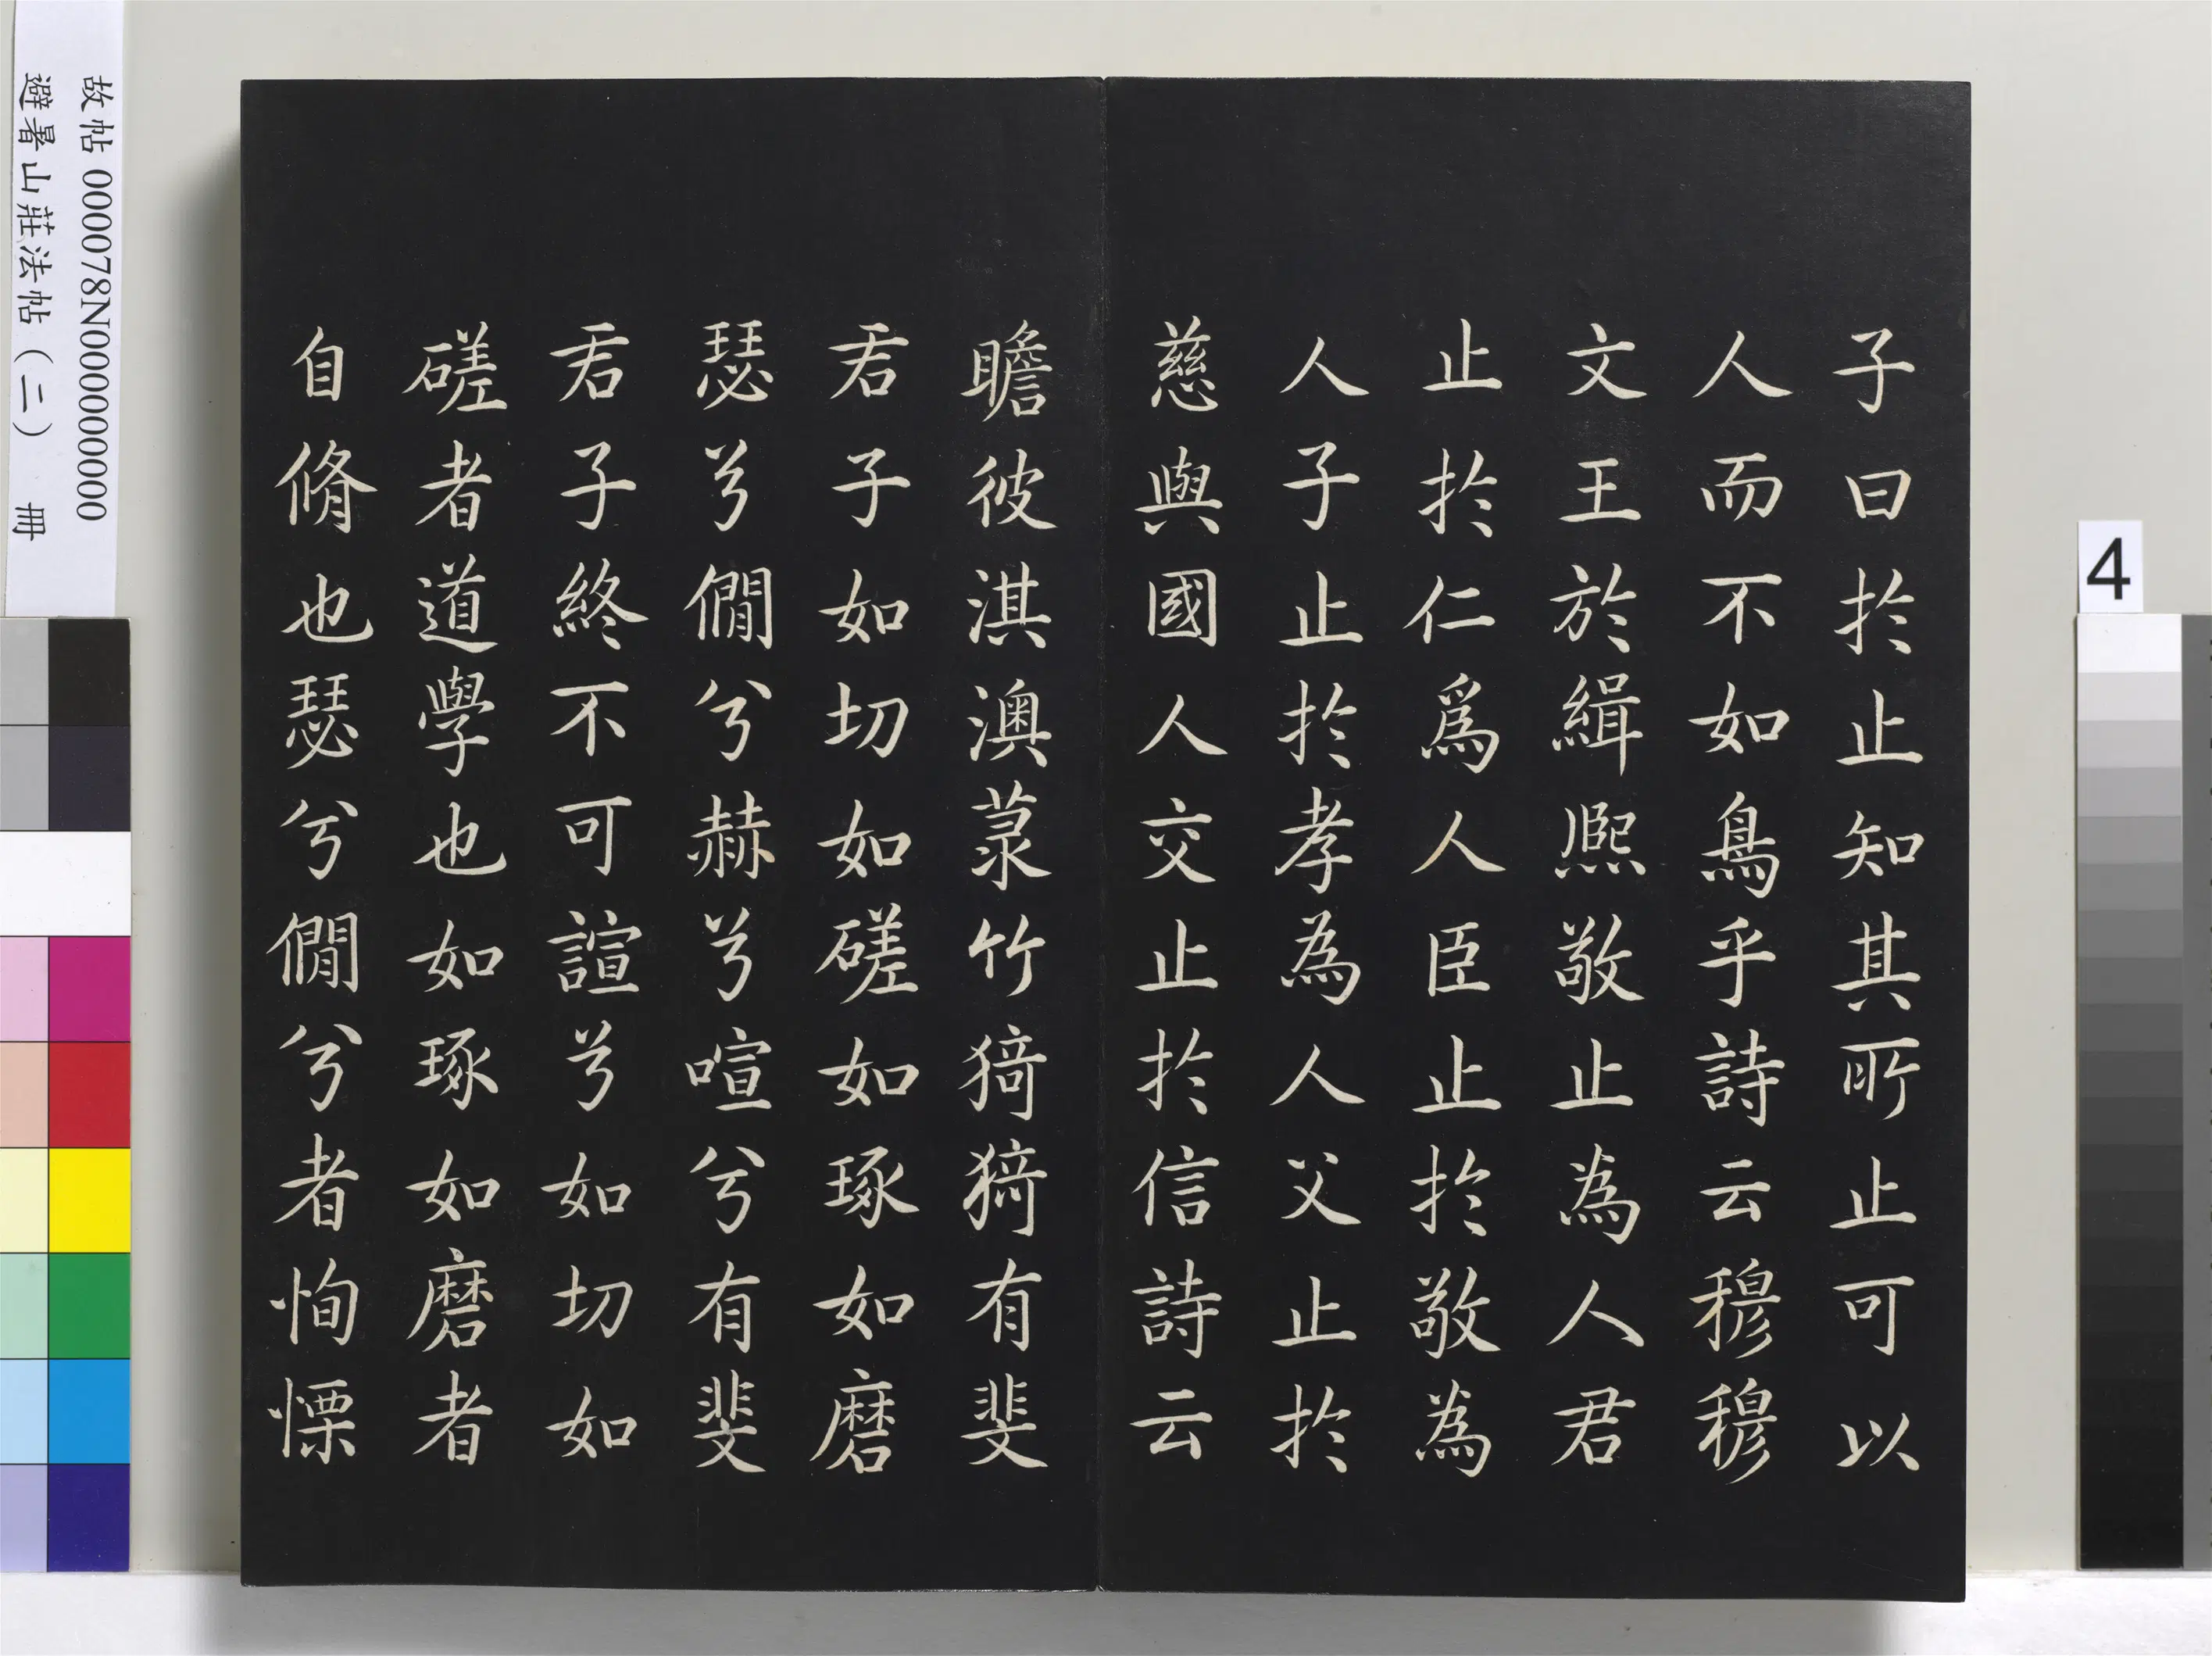 子曰於止知其所止可以
人而不如鳥乎詩云穆穆
文王於緝熙敬止為人君
止於仁爲人臣止於敬為
人子止於孝為人父止於
慈與國人交止於信詩云
瞻彼淇澳菉竹猗猗有斐
君子如切如磋如琢如磨
瑟兮僩兮赫兮喧兮有斐
君子終不可諠兮如切如
磋者道學也如琢如磨者
自脩也瑟兮僩兮者恂慄
故帖 000078N000000000
避暑山莊法帖(二) 冊
4